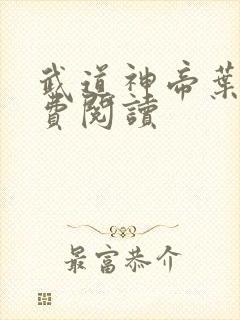 武道神帝葉
費閱讀
最富恭介